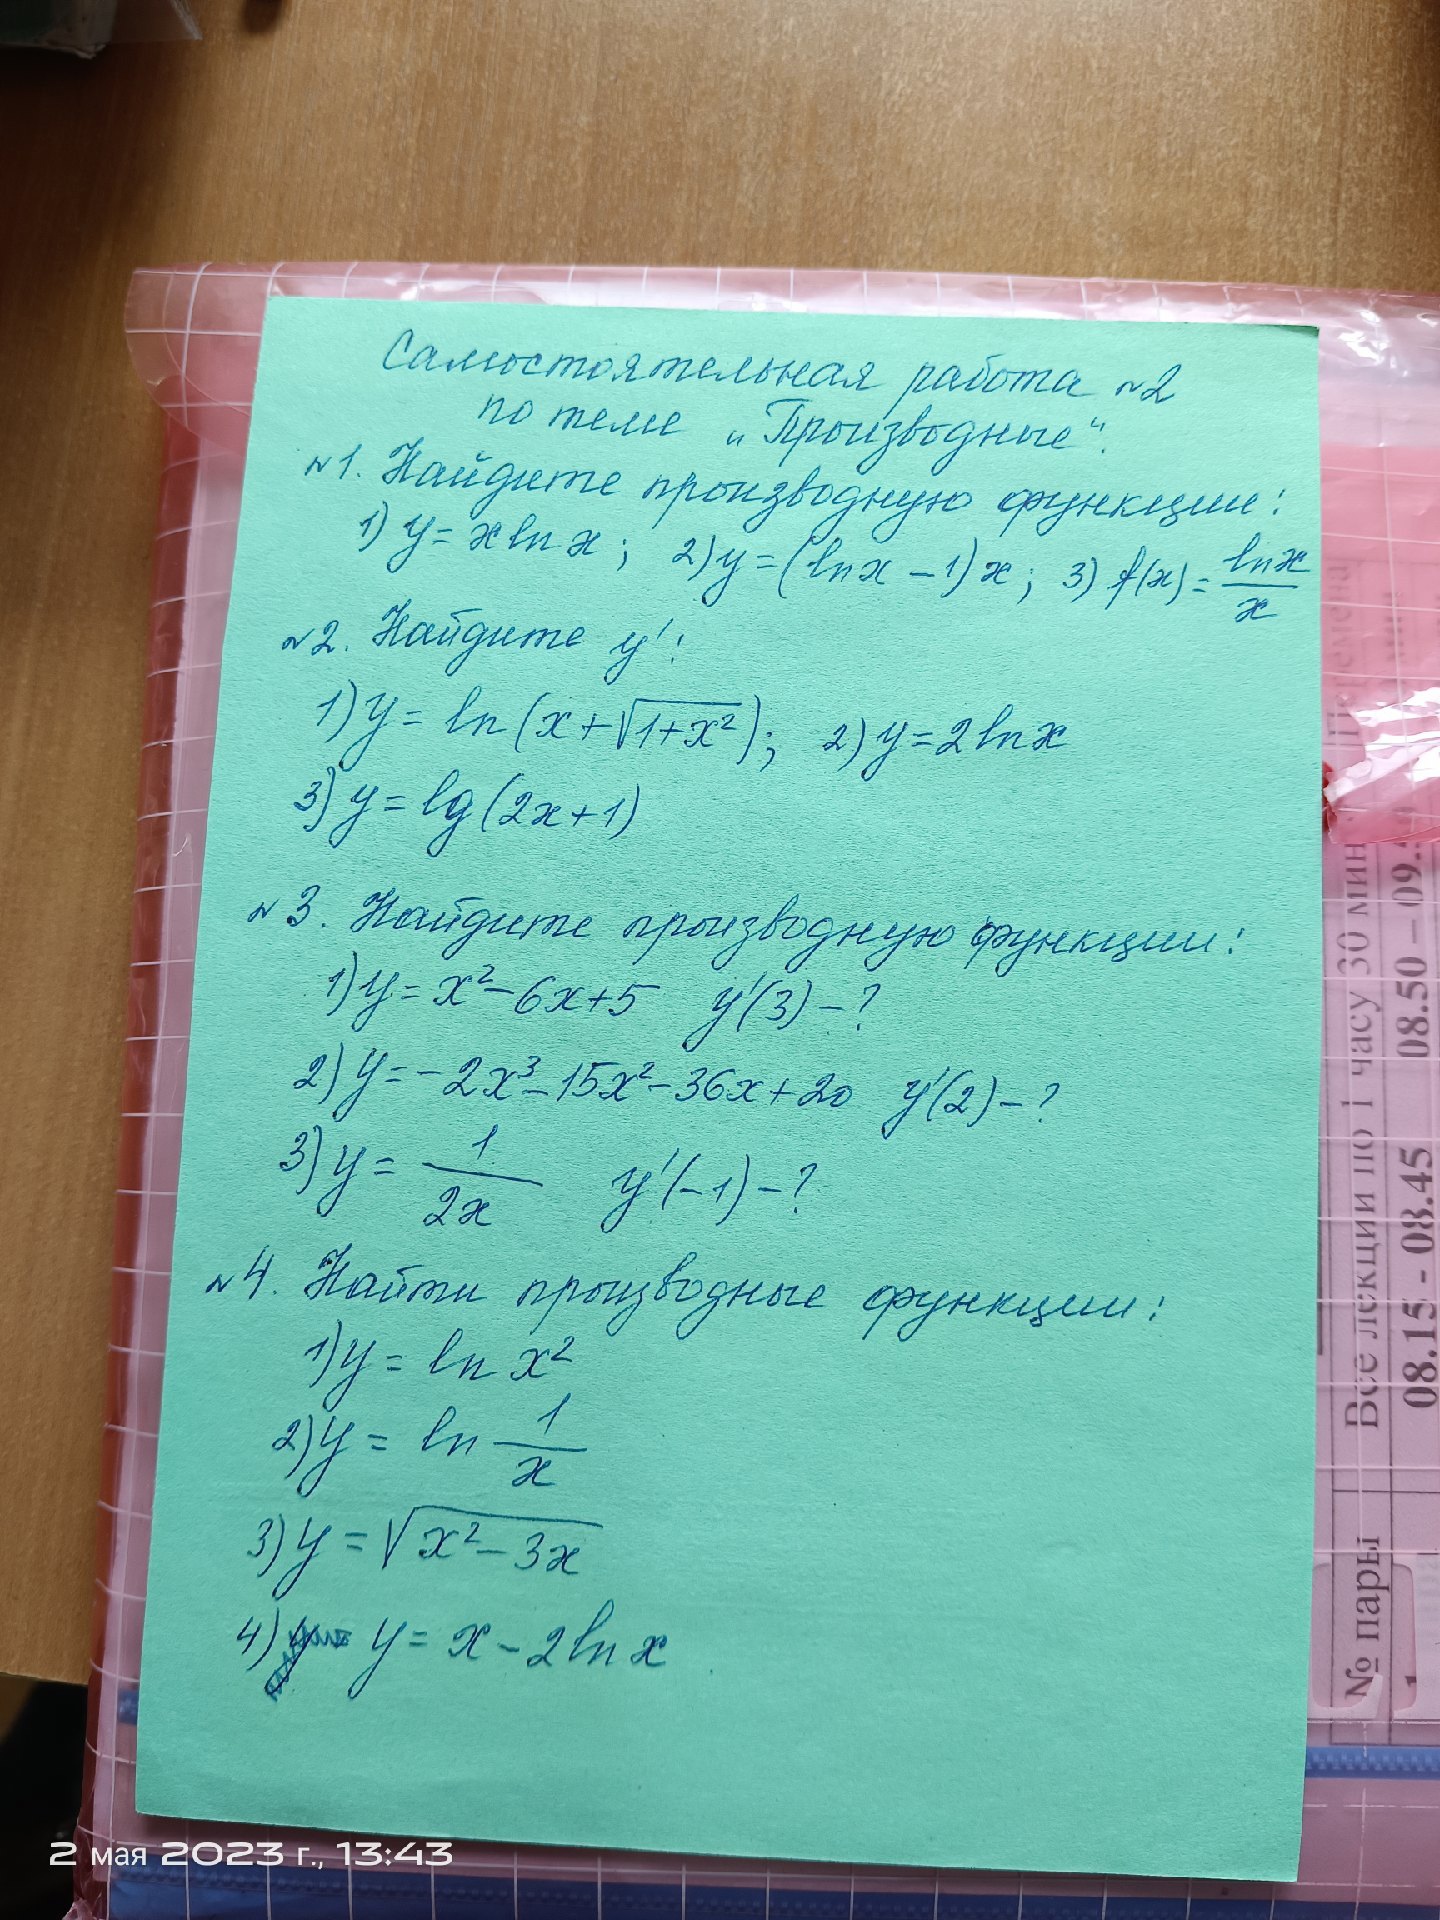 Самостоятельная работа №2
по теме „Производные".
№1. Найдите производную функции:
1) y = x ln x; 2) y = (ln x - 1) x; 3) f(x) = ln x / x
№2. Найдите y':
1) y = ln (x + √(1+x²)); 2) y = 2 ln x
3) y = lg (2x+1)
№3. Найдите производную функции:
1) y = x² - 6x + 5 y'(3) - ?
2) y = -2x³ - 15x² - 36x + 20 y'(2) - ?
3) y = 1 / 2x y'(-1) - ?
№4. Найти производные функции:
1) y = ln x²
2) y = ln 1/x
3) y = √(x² - 3x)
4) y = x - 2 ln x
Все лекции по 1 часу 30 мин
№ пары 08.15 - 08.45 08.50 – 09.
2 мая 2023 г., 13:43